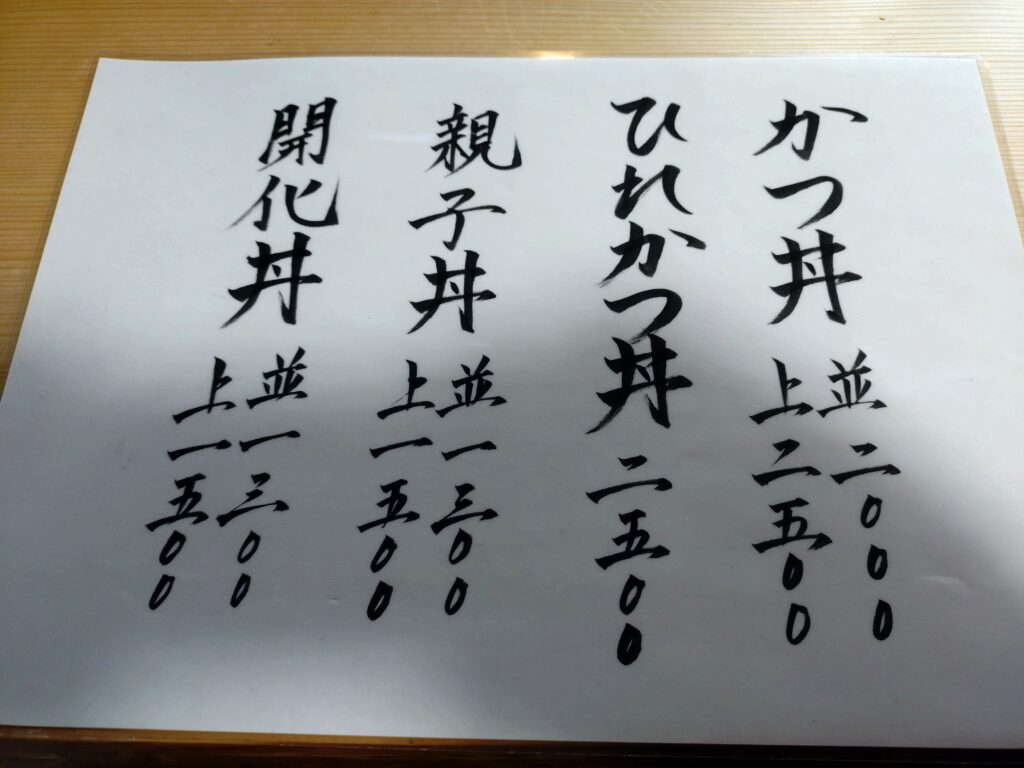 かつ丼
並二〇〇〇
上二五〇〇
ひれかつ丼 二五〇〇
親子丼
並一三〇〇
上一五〇〇
開化丼
並一三〇〇
上一五〇〇